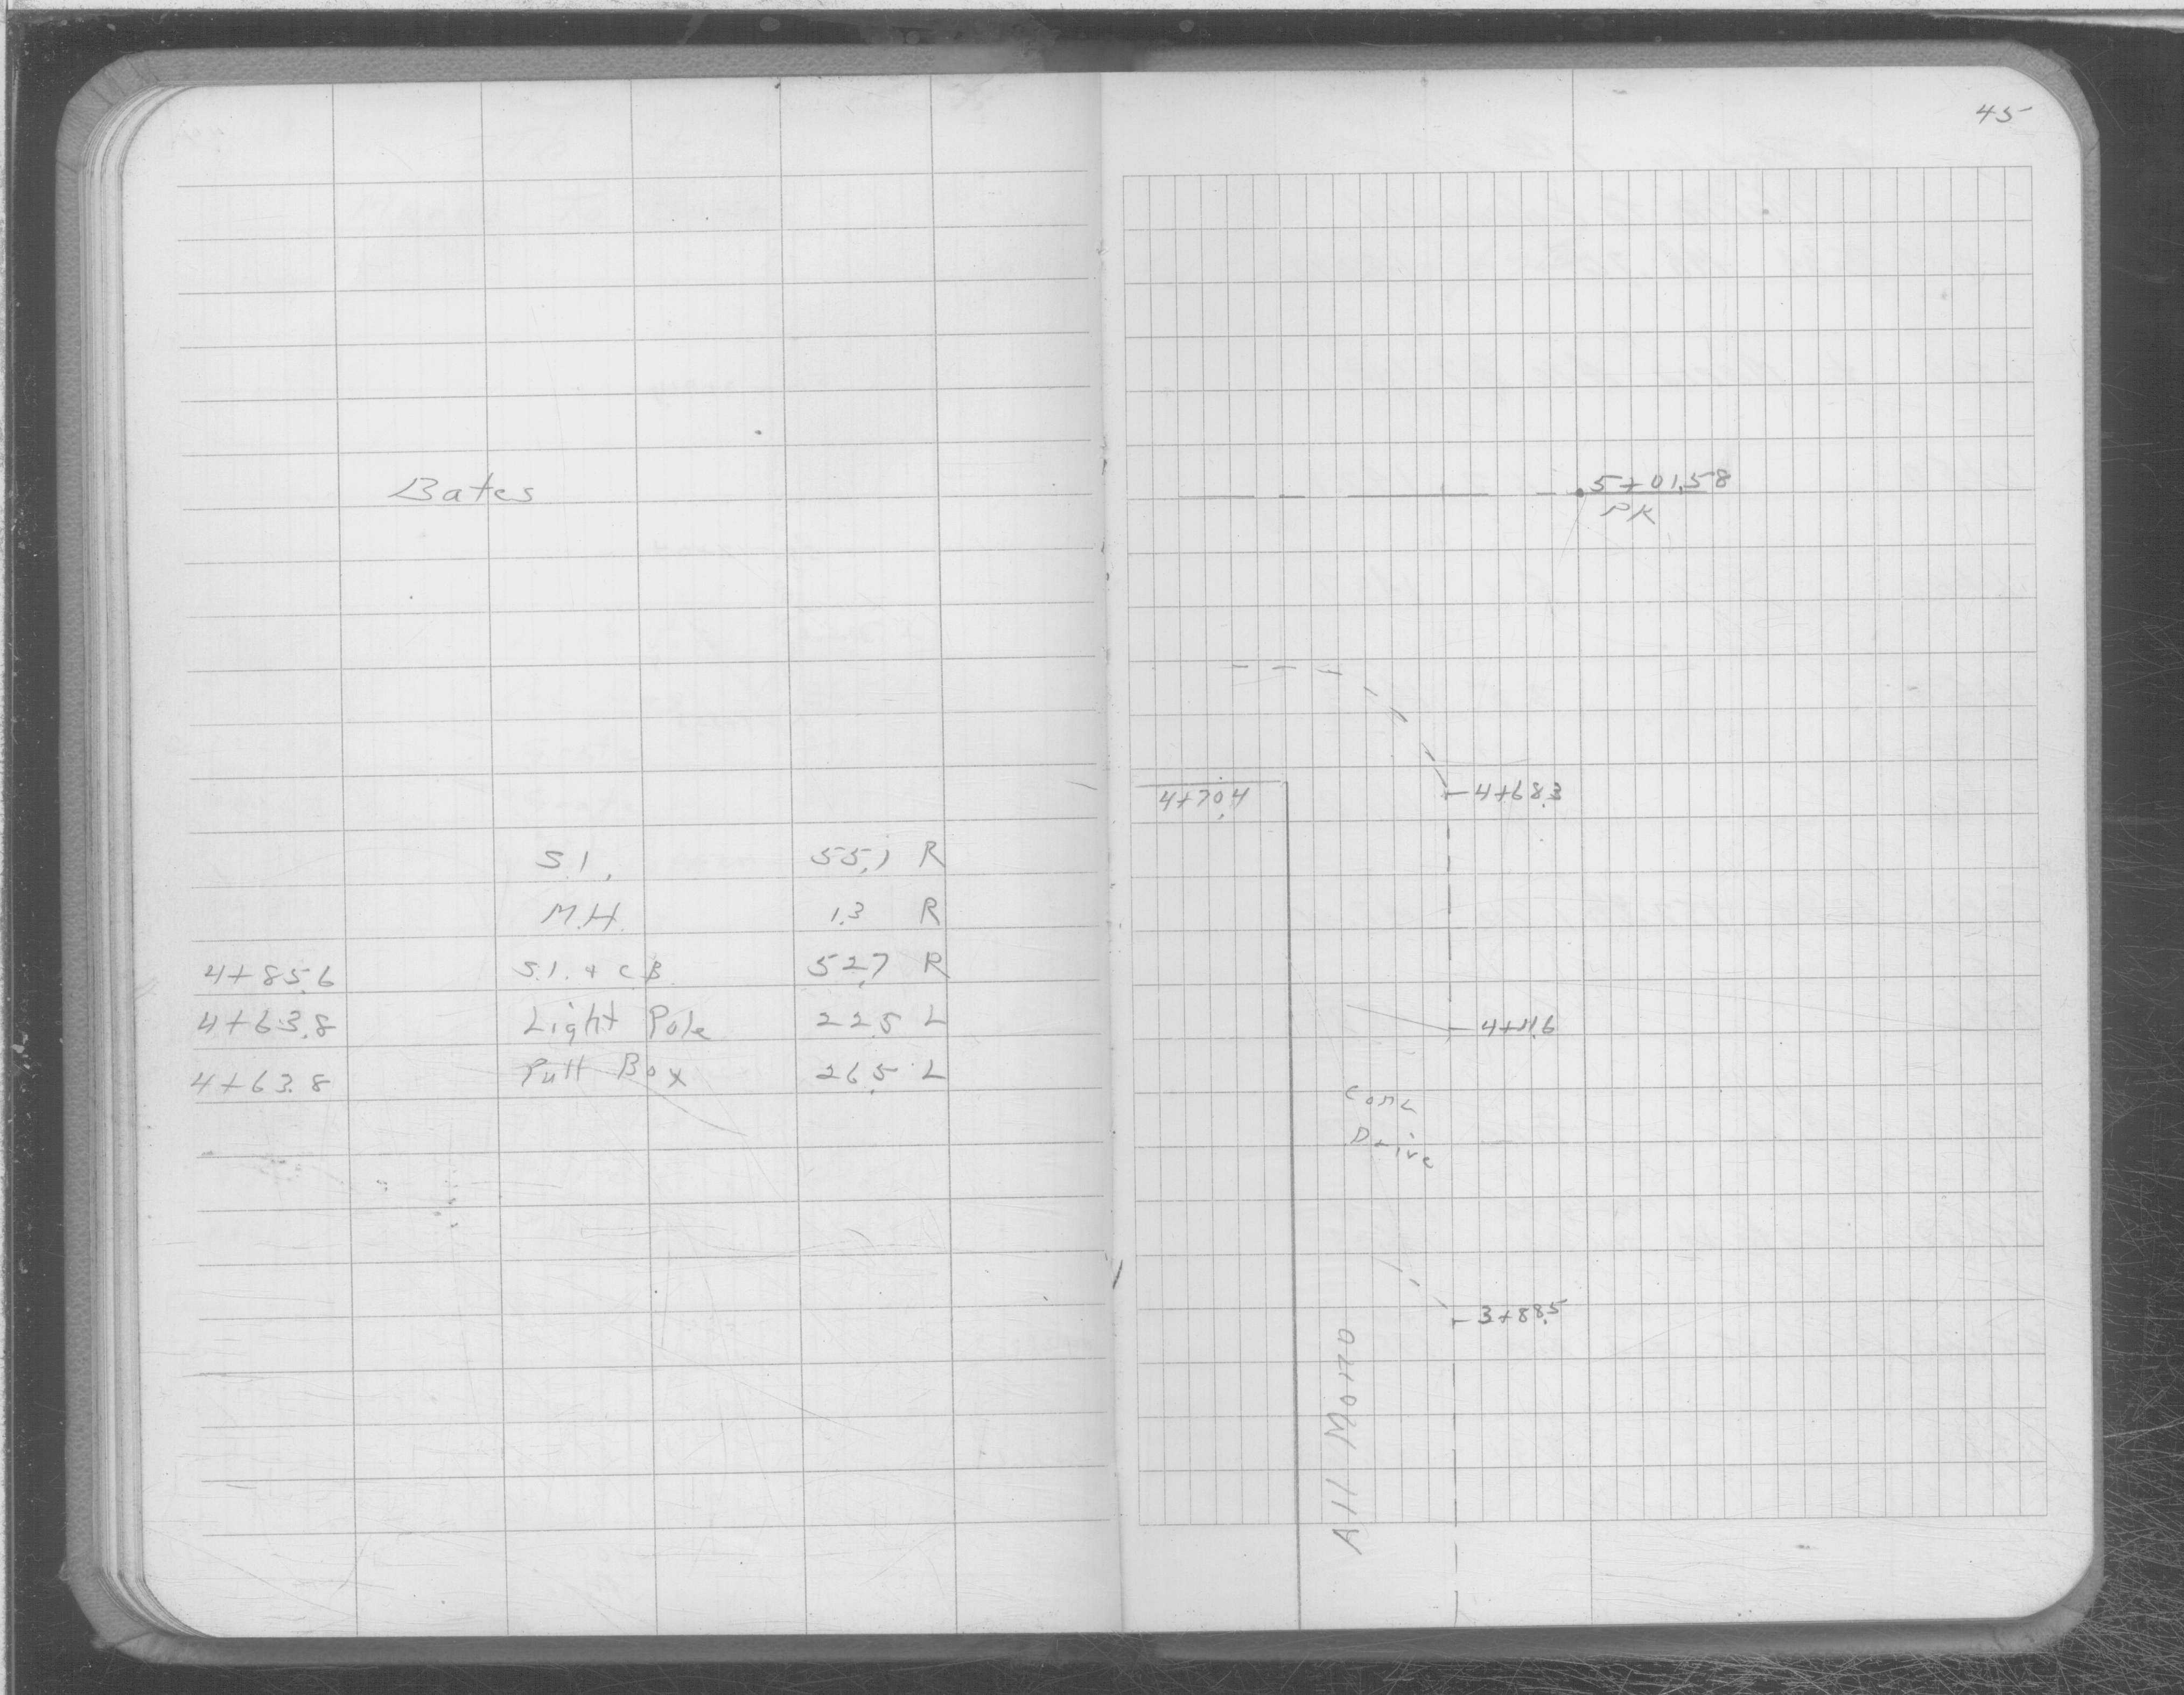 Bates
S.I. 55.1 R
M.H. 1.3 R
4+85.6 S.I. & C.B. 52.7 R
4+63.8 Light Pole 22.5 L
4+63.8 Pull Box 26.5 L
45
5+01.58
PK
4+70.4
4+68.3
4+11.6
Conc
Drive
3+88.5
All Mono